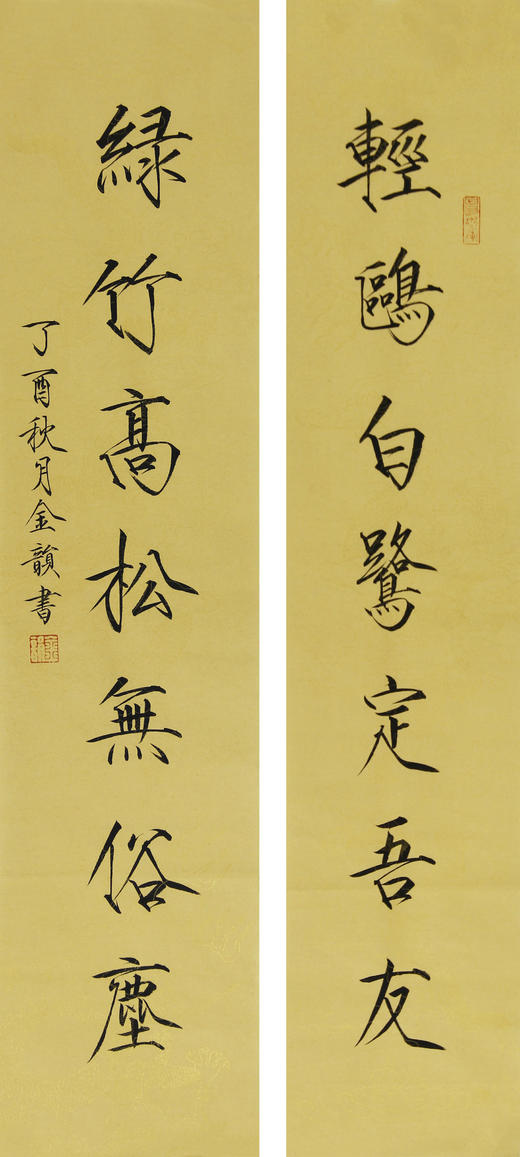 輕鷗白鷺定吾友
綠竹高松無俗塵
丁酉秋月金韻書